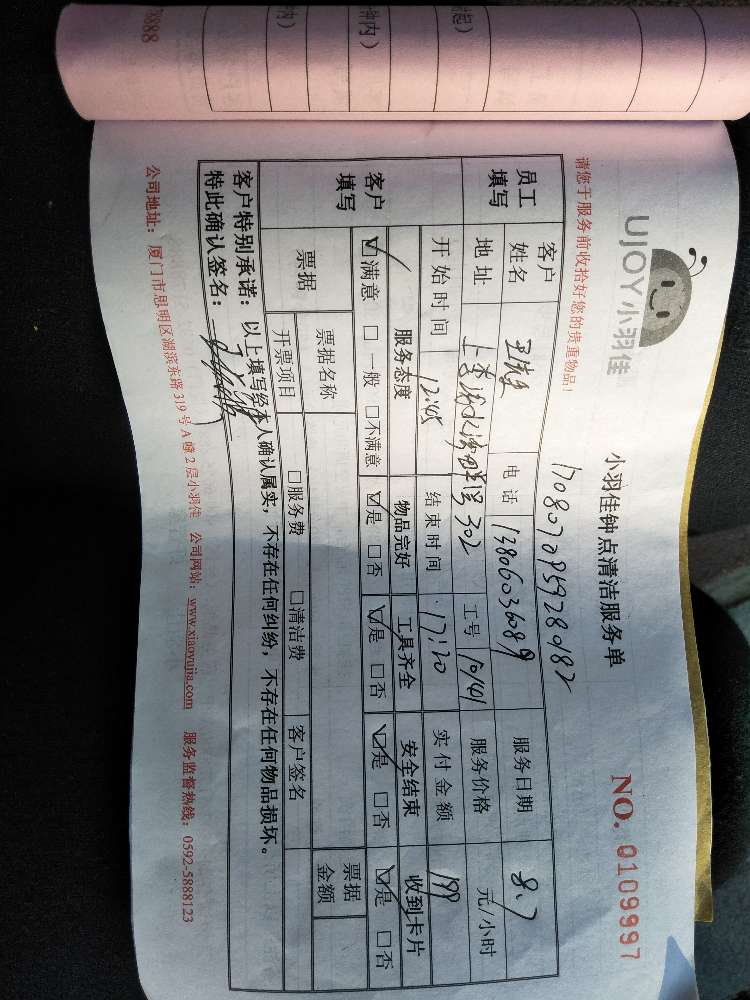 78888
钟内）
UJOY小羽佳
小羽佳钟点清洁服务单
NO. 0109997
请您于服务前收拾好您的贵重物品！
1708070959280182
员工填写
客户姓名
电话 13806036089
服务日期 8.7
地址 302
工号 10141
服务价格 元/小时
开始时间 12:45
结束时间 17:20
实付金额 199
客户填写
服务态度 物品完好 工具齐全 安全结束 收到卡片
☑满意 □一般 □不满意 ☑是 □否 ☑是 □否 ☑是 □否 ☑是 □否
票据 票据名称 票据金额
开票项目 □服务费 □清洁费 客户签名
客户特别承诺：以上填写经本人确认属实，不存在任何纠纷，不存在任何物品损坏。
特此确认签名：
公司地址：厦门市思明区湖滨东路319号A幢2层小羽佳 公司网站：www.xiaoyujia.com 服务监督热线：0592-5888123